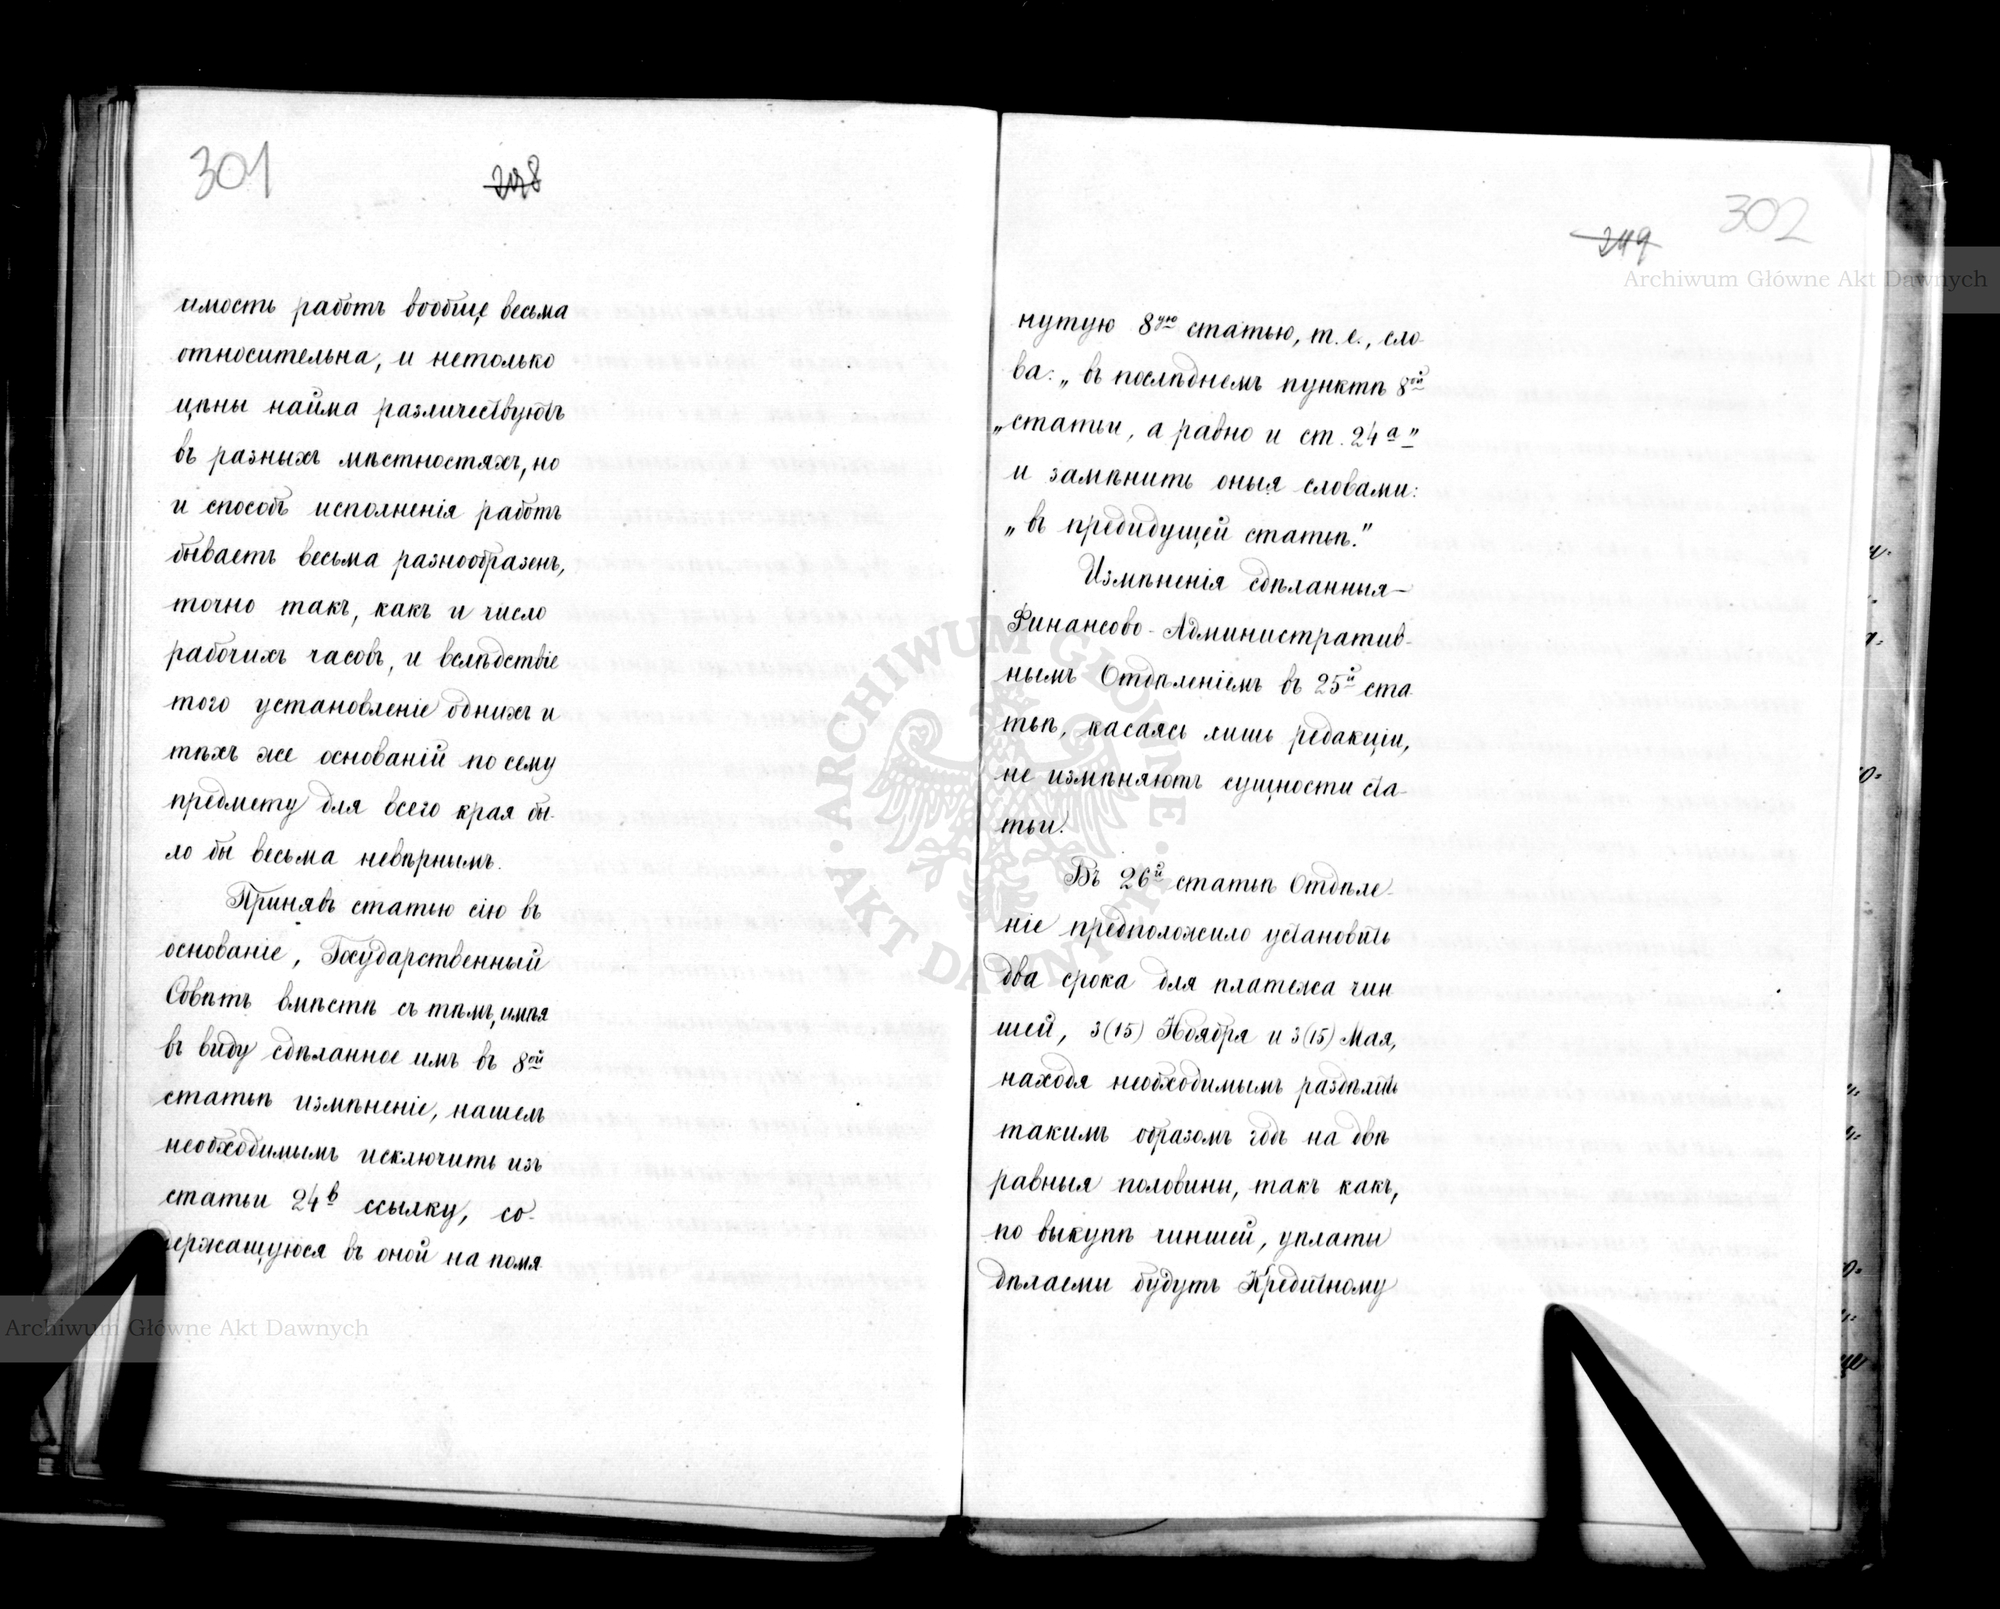 301
248
имость работъ вообще весьма
относительна, и нетолько
цѣны найма различествуютъ
въ разныхъ мѣстностяхъ, но
и способъ исполненія работъ
бываетъ весьма разнообразенъ,
точно такъ, какъ и число
рабочихъ часовъ, и вслѣдствіе
того установленіе однихъ и
тѣхъ же основаній по сему
предмету для всего края бы-
ло бы весьма невѣрнымъ.
Принявъ статью сію въ
основаніе, Государственный
Совѣтъ вмѣстѣ съ тѣмъ, имѣя
въ виду сдѣланное имъ въ 8ой
статьѣ измѣненіе, нашелъ
необходимымъ исключить изъ
статьи 24в ссылку, со-
держащуюся въ оной на помя
302
249
нутую 8ую статью, т. е., сло
ва: „въ послѣднемъ пунктѣ 8ой
„статьи, а равно и ст. 24а”
и замѣнить оныя словами:
„въ предидущей статьѣ.”
Измѣненія сдѣланныя
Финансово-Административ-
нымъ Отдѣленіемъ въ 25й ста
тьѣ, касаясь лишь редакціи,
не измѣняютъ сущности ста-
тьи.
Въ 26й статьѣ Отдѣле-
ніе предположило установить
два срока для платежа чин
шей, 3(15) Ноября и 3(15) Мая,
находя необходимымъ раздѣлить
такимъ образомъ годъ на двѣ
равныя половины, такъ какъ,
по выкупѣ чиншей, уплаты
дѣлаемы будутъ Кредитному
Archiwum Główne Akt Dawnych
Archiwum Główne Akt Dawnych
ARCHIWUM GŁÓWNE
AKT DAWNYCH